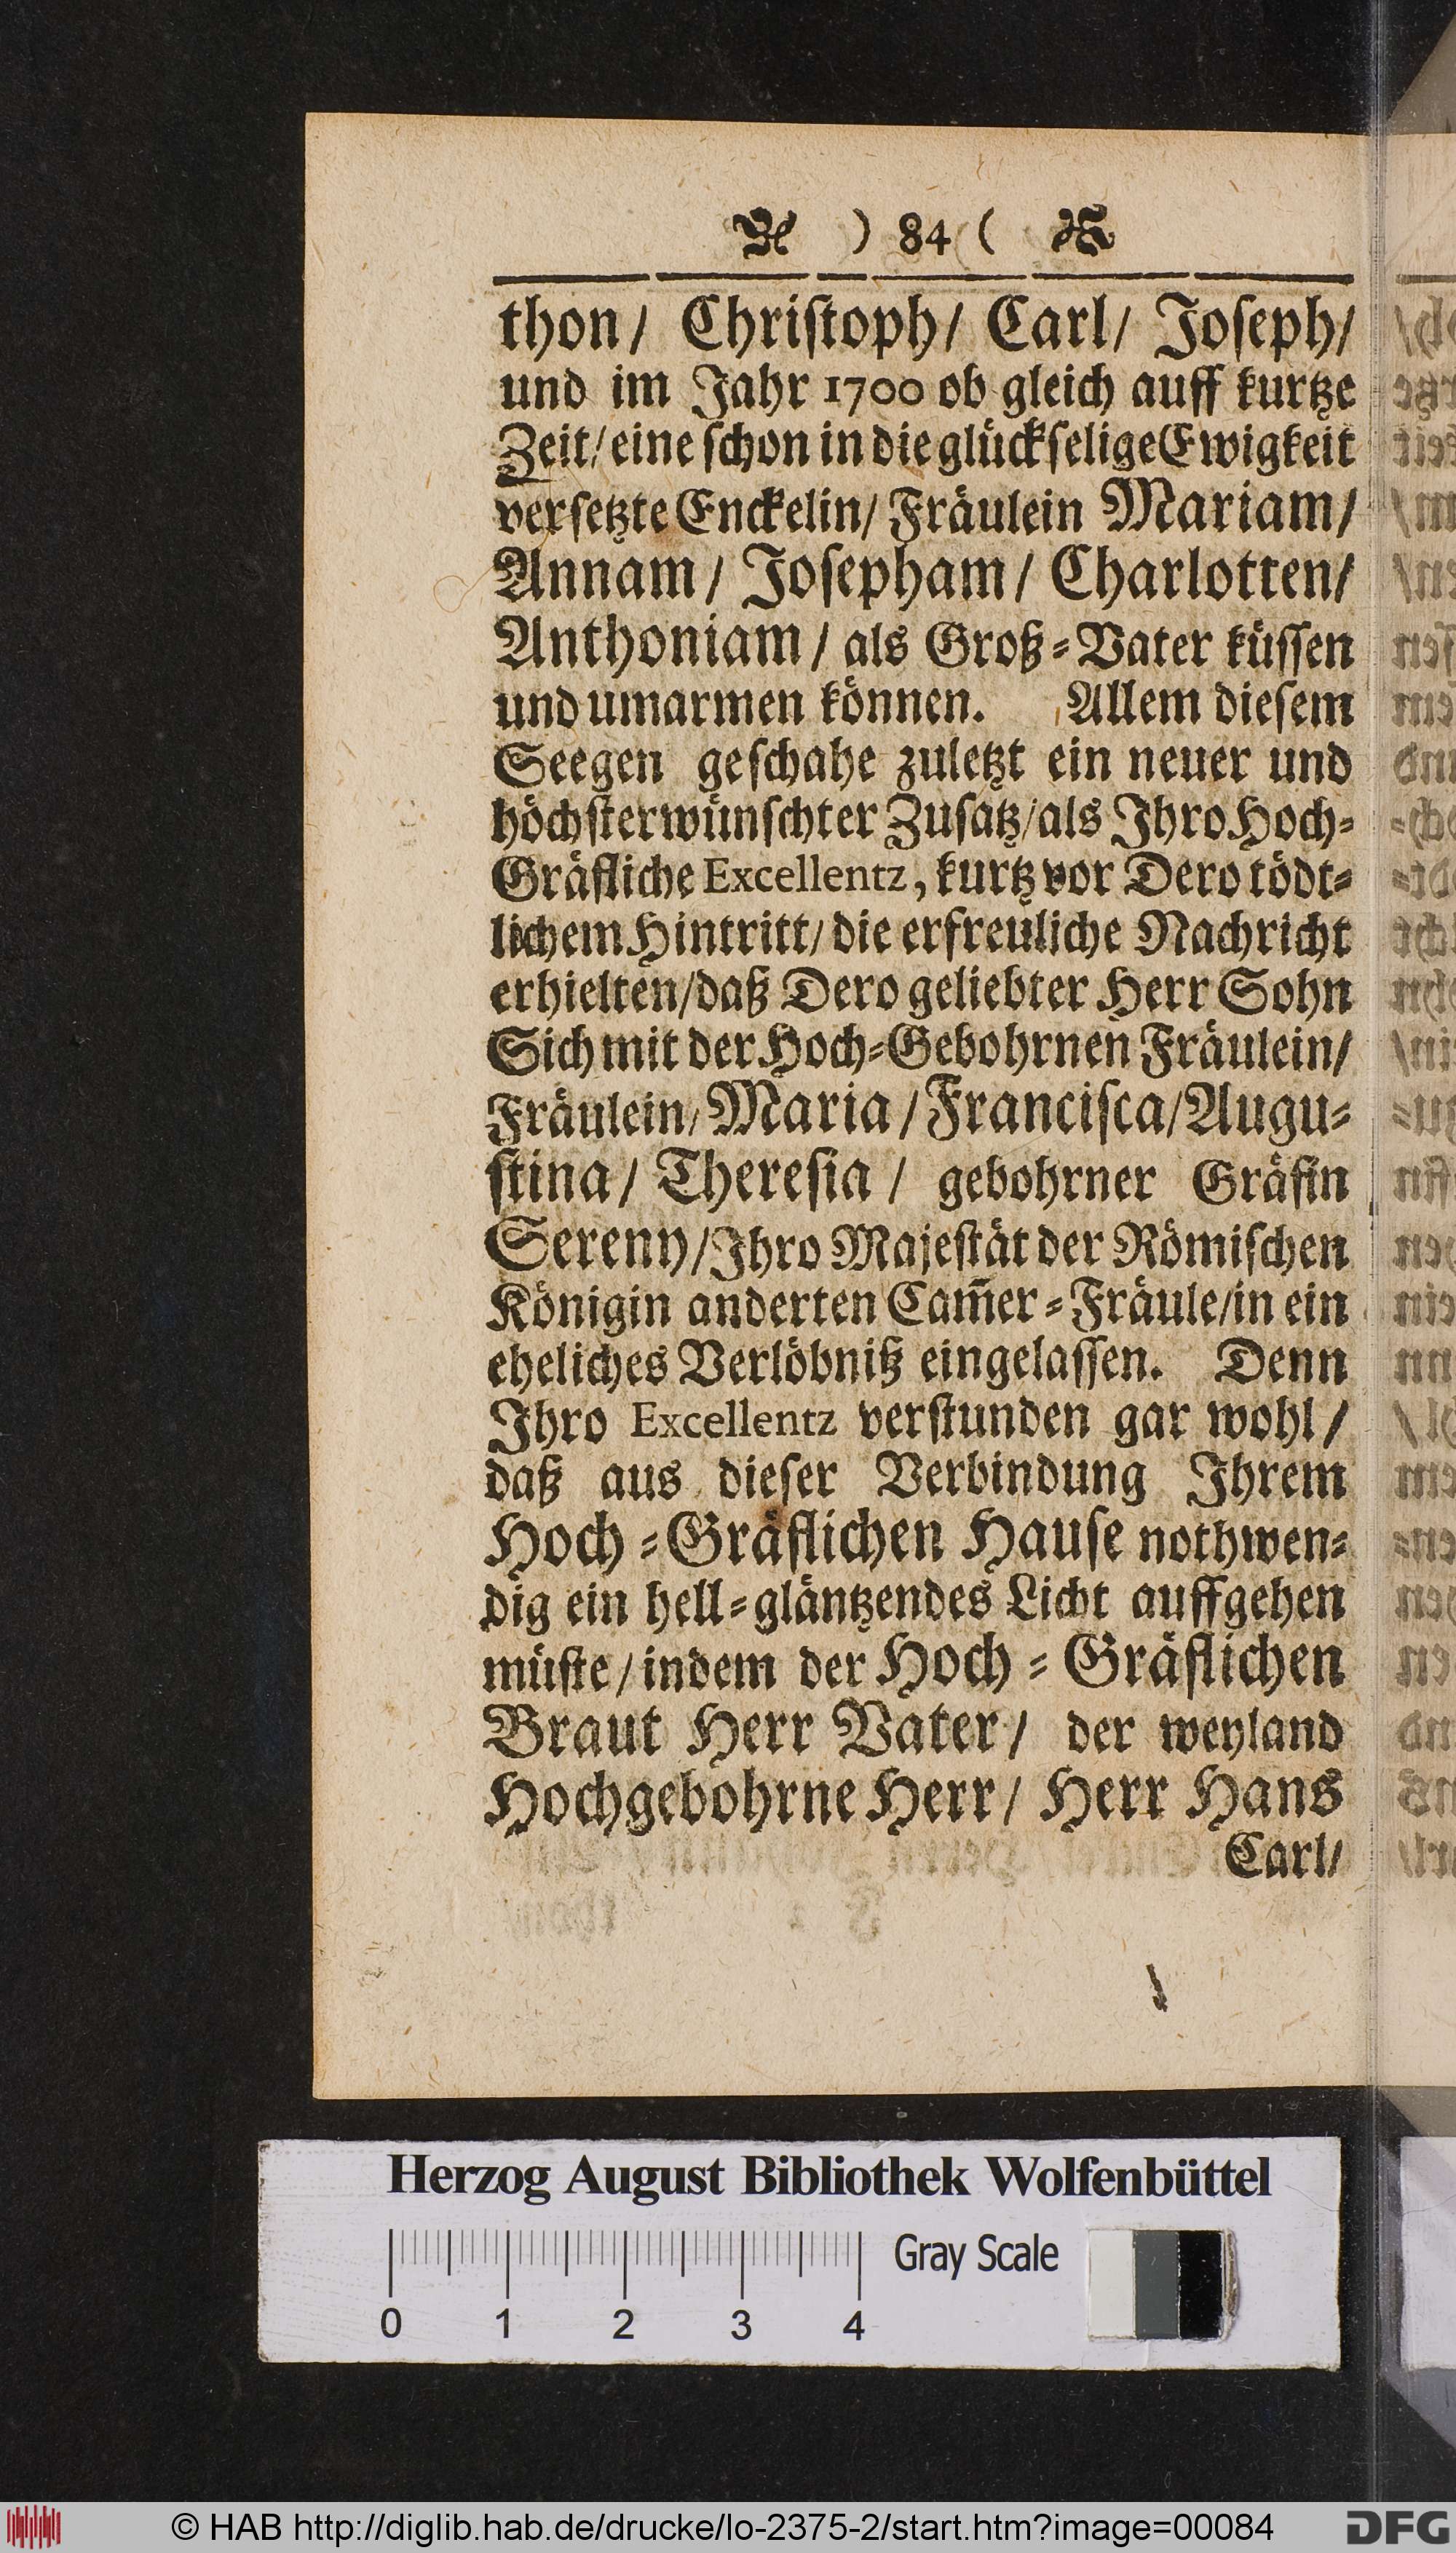 ) 84 (
thon/ Chriſtoph/ Carl/ Joſeph/
und im Jahr 1700 ob gleich auff kurtze
Zeit/ eine ſchon in die glückſelige Ewigkeit
verſetzte Enckelin/ Fräulein Mariam/
Annam/ Joſepham/ Charlotten/
Anthoniam/ als Groß-Vater küſſen
und umarmen können. Allem dieſem
Seegen geſchahe zuletzt ein neuer und
höchſterwünſchter Zuſatz/als Ihro Hoch-
Gräfliche Excellentz, kurtz vor Dero tödt-
lichem Hintritt/ die erfreuliche Nachricht
erhielten/daß Dero geliebter Herr Sohn
Sich mit der Hoch-Gebohrnen Fräulein/
Fräulein/ Maria/ Franciſca/Augu-
ſtina/ Thereſia/ gebohrner Gräfin
Sereny/Ihro Majeſtät der Römiſchen
Königin anderten Cam̅er-Fräule/in ein
eheliches Verlöbniß eingelaſſen. Denn
Ihro Excellentz verſtunden gar wohl/
daß aus dieſer Verbindung Ihrem
Hoch-Gräflichen Hauſe nothwen-
dig ein hell-gläntzendes Licht auffgehen
müſte/ indem der Hoch-Gräflichen
Braut Herr Vater/ der weyland
Hochgebohrne Herr/ Herr Hans
Carl/
Herzog August Bibliothek Wolfenbüttel
Gray Scale
0 1 2 3 4
© HAB http://diglib.hab.de/drucke/lo-2375-2/start.htm?image=00084
DFG